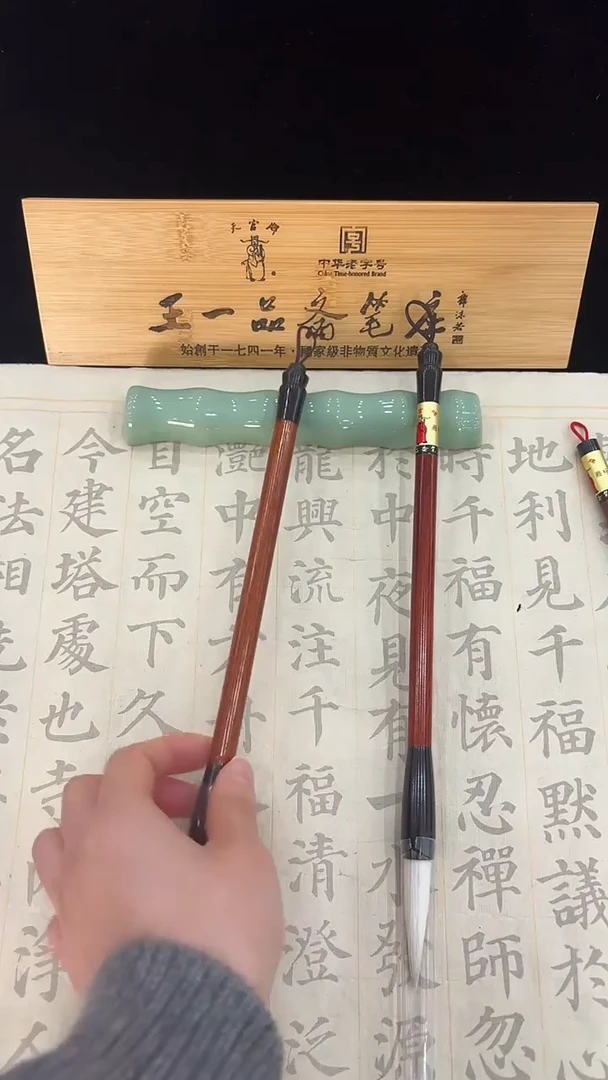 中华老字号
China Time-honored Brand
王一品斋笔
郭沫若
始創于一七四一年·國家級非物質文化遺
地利見千福默議於
時千福有懷忍禪師忽
於中夜見有一水發源
龍興流注千福清澄泛
灔中有
自空而下久
今建塔處也寺
淨人
名法相